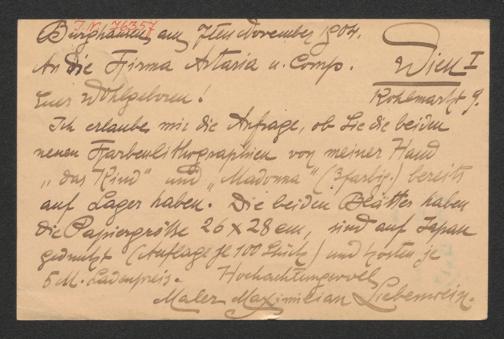 J.Nr. 76357
Burghausen, am 7ten November 1904.
An die Firma Artaria u. Comp. Wien I
Kohlmarkt 9.
Euer Wohlgeboren!
Ich erlaube mir die Anfrage, ob Sie die beiden
neuen Farbenlithographien von meiner Hand
„das Kind" und „Madonna" (3farbig.) bereits
auf Lager haben. Die beiden Blätter haben
die Papiergröße 26 x 28 cm, sind auf Japan
gedruckt (Auflage je 100 Stück) und kosten je
5 M. Ladenpreis. Hochachtungsvoll
Maler Maximilian Liebenwein.